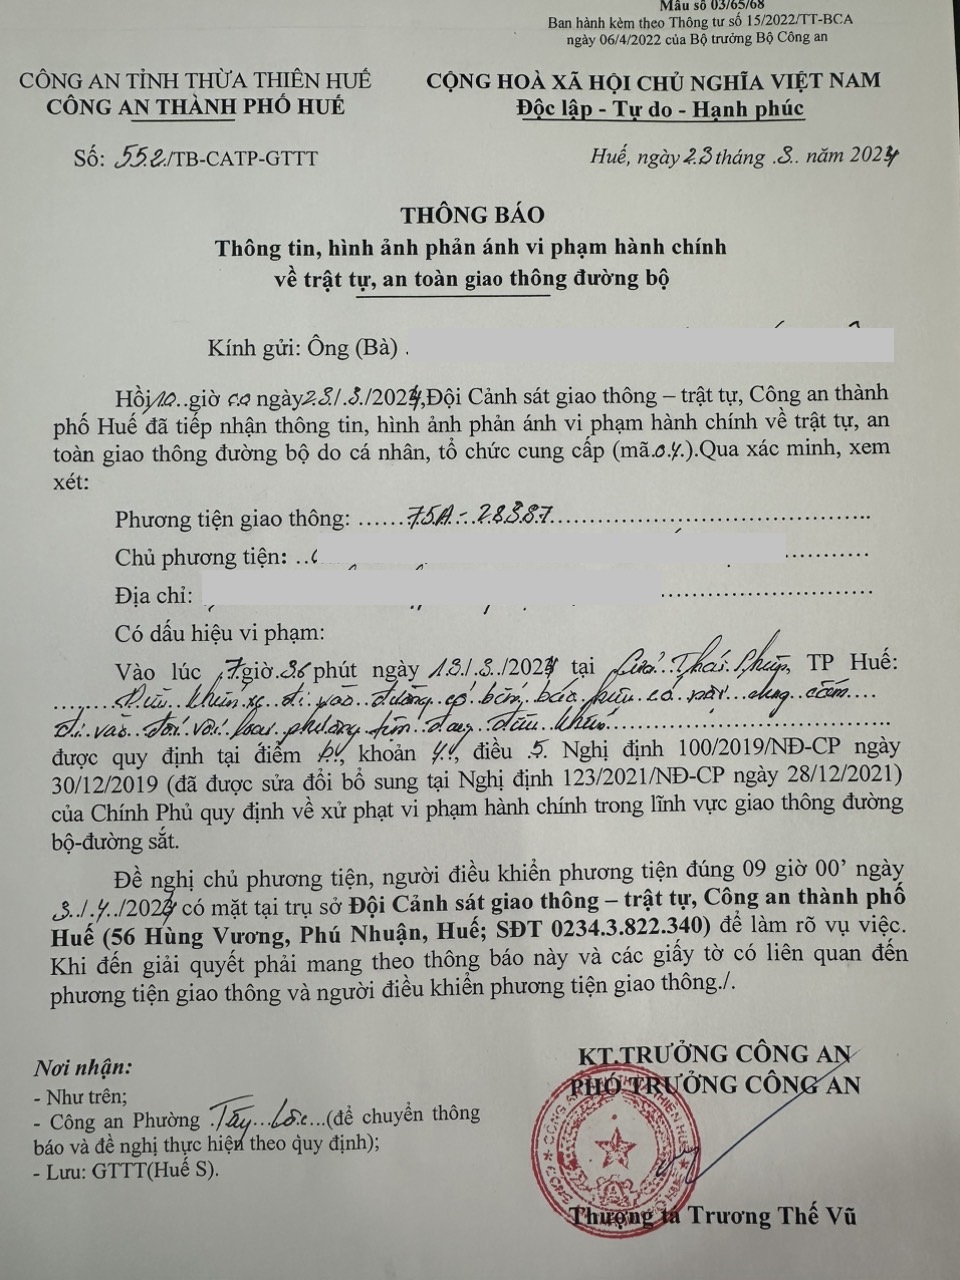 Mẫu số 03/65/68
Ban hành kèm theo Thông tư số 15/2022/TT-BCA
ngày 06/4/2022 của Bộ trưởng Bộ Công an
CÔNG AN TỈNH THỪA THIÊN HUẾ
CÔNG AN THÀNH PHỐ HUẾ
CỘNG HOÀ XÃ HỘI CHỦ NGHĨA VIỆT NAM
Độc lập - Tự do - Hạnh phúc
Số: 552/TB-CATP-GTTT
Huế, ngày 23 tháng .3. năm 2024
THÔNG BÁO
Thông tin, hình ảnh phản ánh vi phạm hành chính
về trật tự, an toàn giao thông đường bộ
Kính gửi: Ông (Bà) .
Hồi 10..giờ 00 ngày 23/.3./2024,Đội Cảnh sát giao thông – trật tự, Công an thành
phố Huế đã tiếp nhận thông tin, hình ảnh phản ánh vi phạm hành chính về trật tự, an
toàn giao thông đường bộ do cá nhân, tổ chức cung cấp (mã.04.).Qua xác minh, xem
xét:
Phương tiện giao thông: ......75A-28387..............................
Chủ phương tiện: ..
Địa chỉ:
Có dấu hiệu vi phạm:
Vào lúc .7giờ.36 phút ngày 13/.3./2024 tại Cửa Thái Phiên, TP Huế:
Điều khiển xe đi vào đường có biển báo hiệu có nội dung cấm
đi vào đối với loại phương tiện đang điều khiển
được quy định tại điểm b, khoản 4, điều .5. Nghị định 100/2019/NĐ-CP ngày
30/12/2019 (đã được sửa đổi bổ sung tại Nghị định 123/2021/NĐ-CP ngày 28/12/2021)
của Chính Phủ quy định về xử phạt vi phạm hành chính trong lĩnh vực giao thông đường
bộ-đường sắt.
Đề nghị chủ phương tiện, người điều khiển phương tiện đúng 09 giờ 00’ ngày
.3../.4../2024 có mặt tại trụ sở Đội Cảnh sát giao thông – trật tự, Công an thành phố
Huế (56 Hùng Vương, Phú Nhuận, Huế; SĐT 0234.3.822.340) để làm rõ vụ việc.
Khi đến giải quyết phải mang theo thông báo này và các giấy tờ có liên quan đến
phương tiện giao thông và người điều khiển phương tiện giao thông./.
Nơi nhận:
- Như trên;
- Công an Phường .Tây...Lộc...(để chuyển thông
báo và đề nghị thực hiện theo quy định);
- Lưu: GTTT(Huế S).
KT.TRƯỞNG CÔNG AN
PHÓ TRƯỞNG CÔNG AN
Thượng tá Trương Thế Vũ